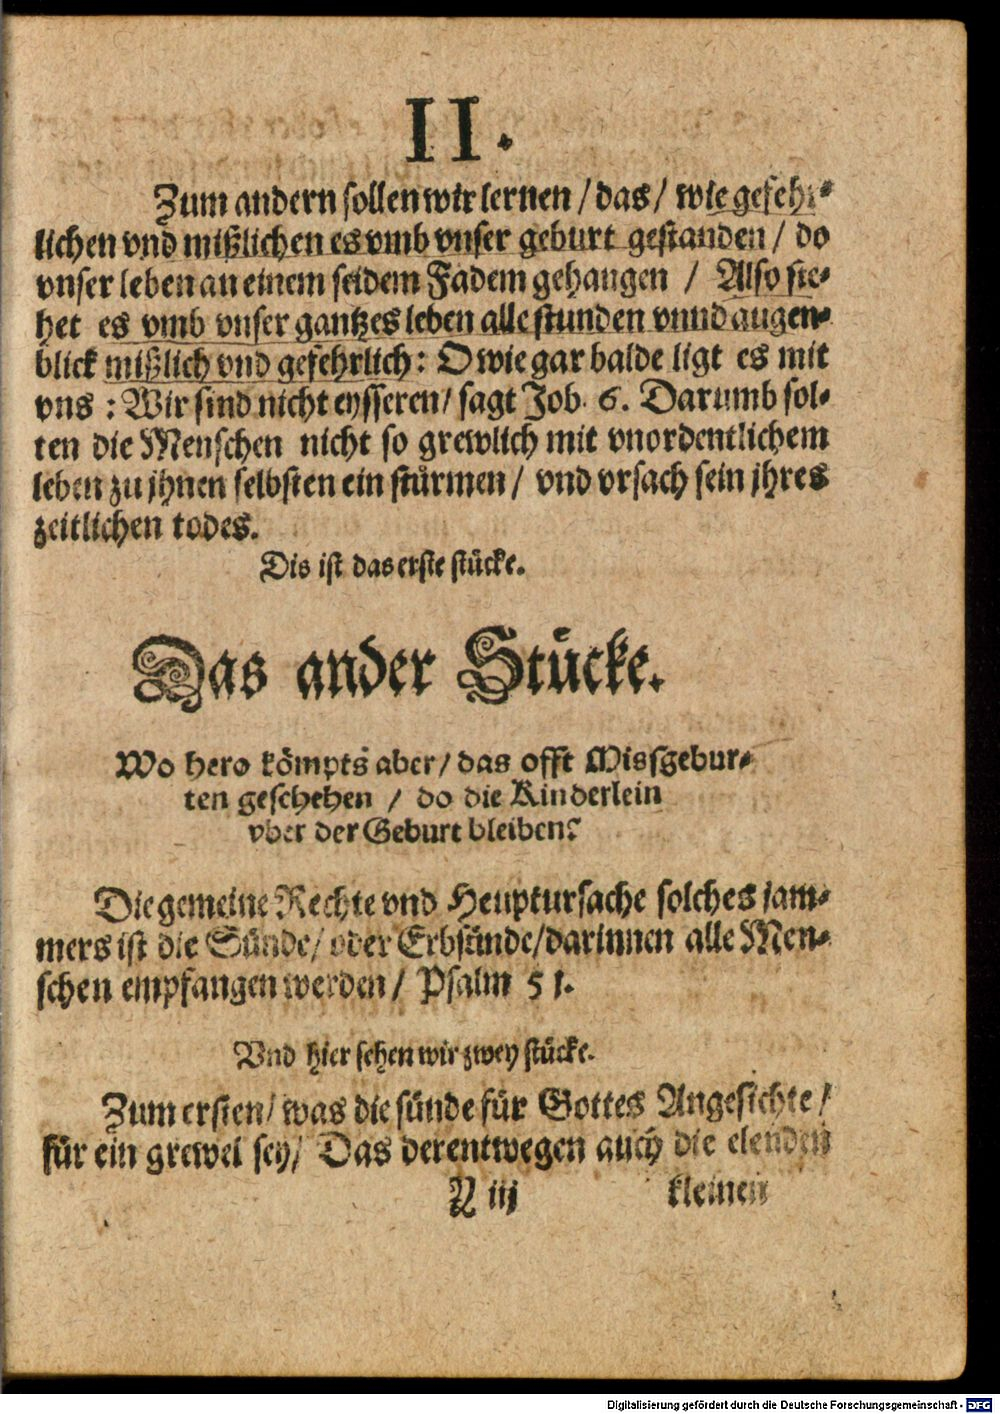 II.
Zum andern sollen wir lernen / das / wie gefehr⸗
lichen vnd mißlichen es vmb vnser geburt gestanden / do
vnser leben an einem seidem Fadem gehangen / Also sie⸗
het es vmb vnser gantzes leben alle stunden vnnd augen⸗
blick mißlich vnd gefehrlich: O wie gar balde ligt es mit
vns : Wir sind nicht eysseren / sagt Job. 6. Darumb sol⸗
ten die Menschen nicht so grewlich mit vnordentlichem
leben zu jhnen selbsten ein stürmen / vnd vrsach sein jhres
zeitlichen todes.
Dis ist das erste stücke.
Das ander Stücke.
Wo hero kömpts aber / das offt Missgebur⸗
ten geschehen / do die Kinderlein
vber der Geburt bleiben?
Die gemeine Rechte vnd Heuptursache solches jam⸗
mers ist die Sünde / oder Erbsünde / darinnen alle Men⸗
schen empfangen werden / Psalm 51.
Vnd hier sehen wir zwey stücke.
Zum ersten / was die sünde für Gottes Angesichte /
für ein grewel sey / Das derentwegen auch die elenden
A iij kleinen
Digitalisierung gefördert durch die Deutsche Forschungsgemeinschaft - DFG